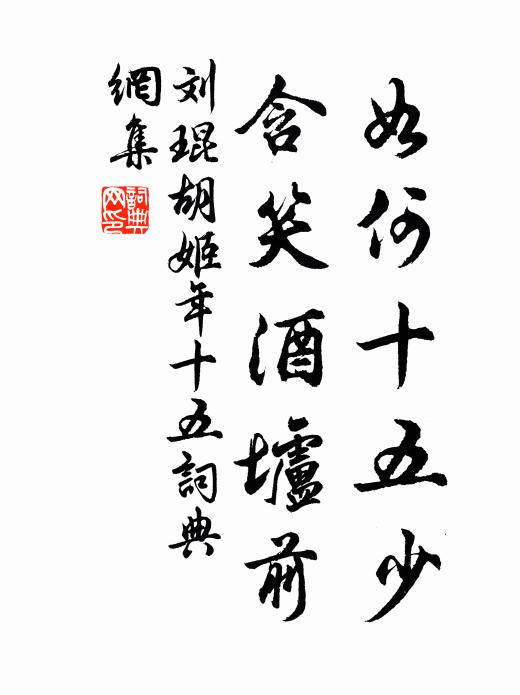 如何十五少
含笑酒壚前
刘琨胡姬年十五詞典
網集
詞典网印